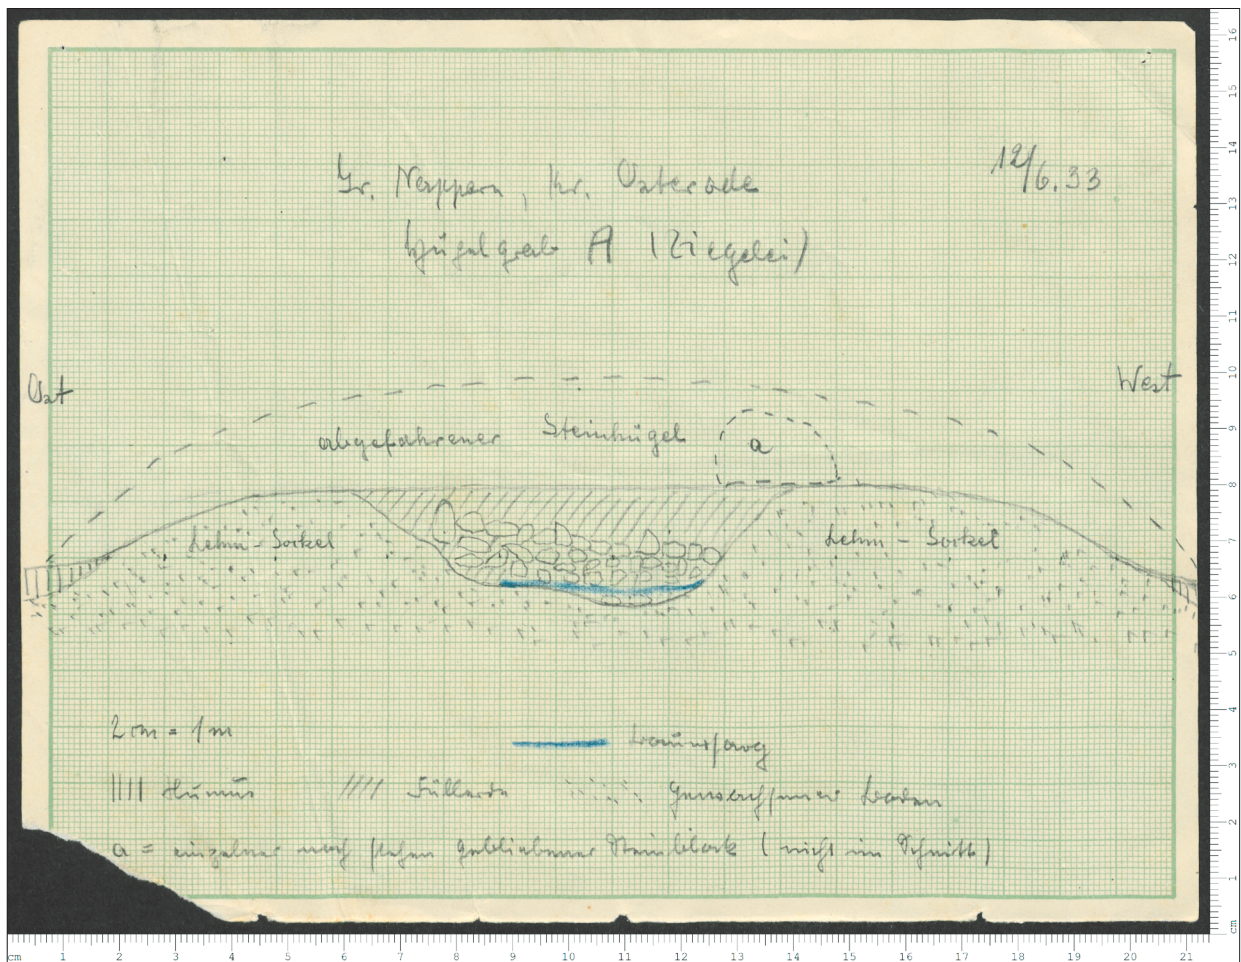 Gr. Nappern, Kr. Osterode
12/6.33
Hügelgrab A (Ziegelei)
Ost
West
abgefahrener Steinhügel
a
Lehm-Sockel
Lehm-Sockel
2 cm = 1 m
Baumsarg
Humus
Füllerde
Gewachsener Boden
a = einzelner noch stehen gebliebener Steinblock (nicht im Schnitt)
16
15
14
13
12
11
10
9
8
7
6
5
4
3
2
1
cm
cm 1 2 3 4 5 6 7 8 9 10 11 12 13 14 15 16 17 18 19 20 21